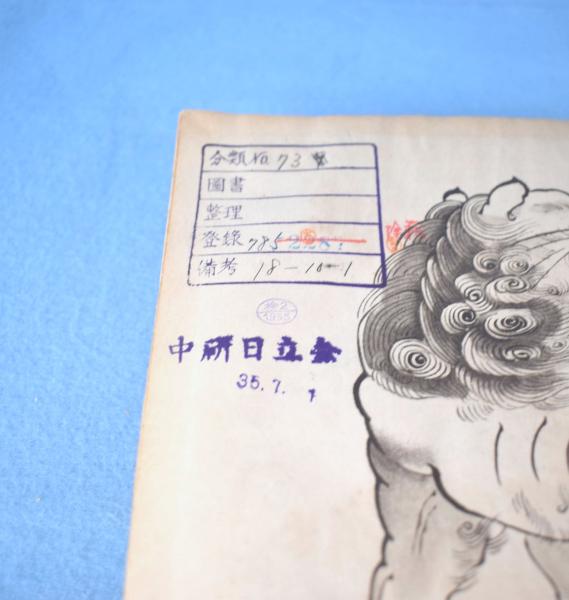 分類 73
圖書
整理
登錄 785
備考 18-10-1
中研日立会
35.7. 1